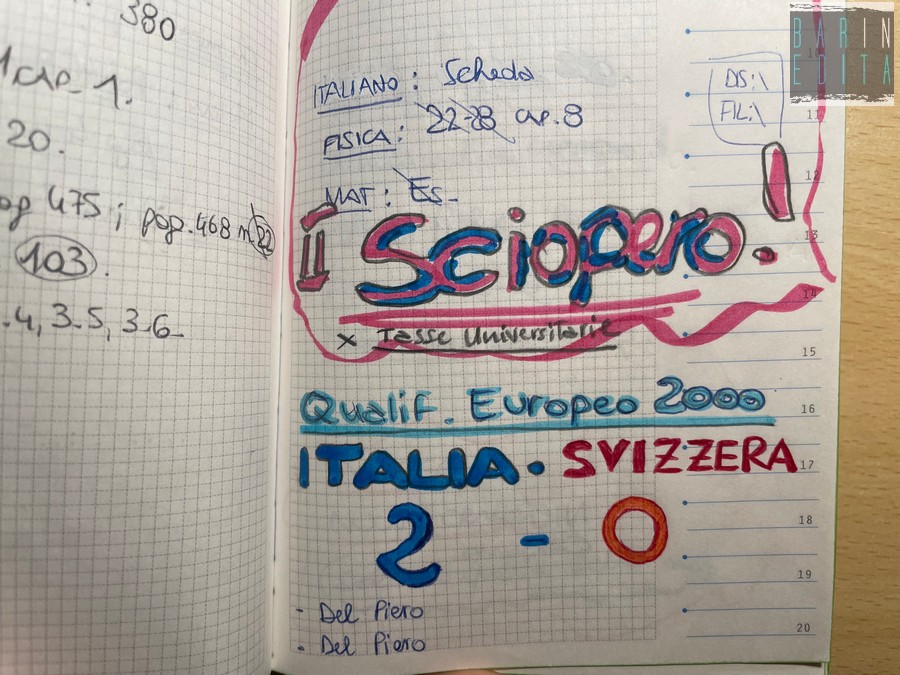 380
1 cap. 1.
20.
pag 475; pag. 468 n. 22
103.
.4, 3.5, 3.6
ITALIANO: Scheda
FISICA: 22-23 cap. 8
MAT: Es.
DS:\
FIL:\
Sciopero!
x Tasse Universitarie
Qualif. Europeo 2000
ITALIA - SVIZZERA
2 - 0
- Del Piero
- Del Piero
11
12
13
14
15
16
17
18
19
20
BARIN
EDITA